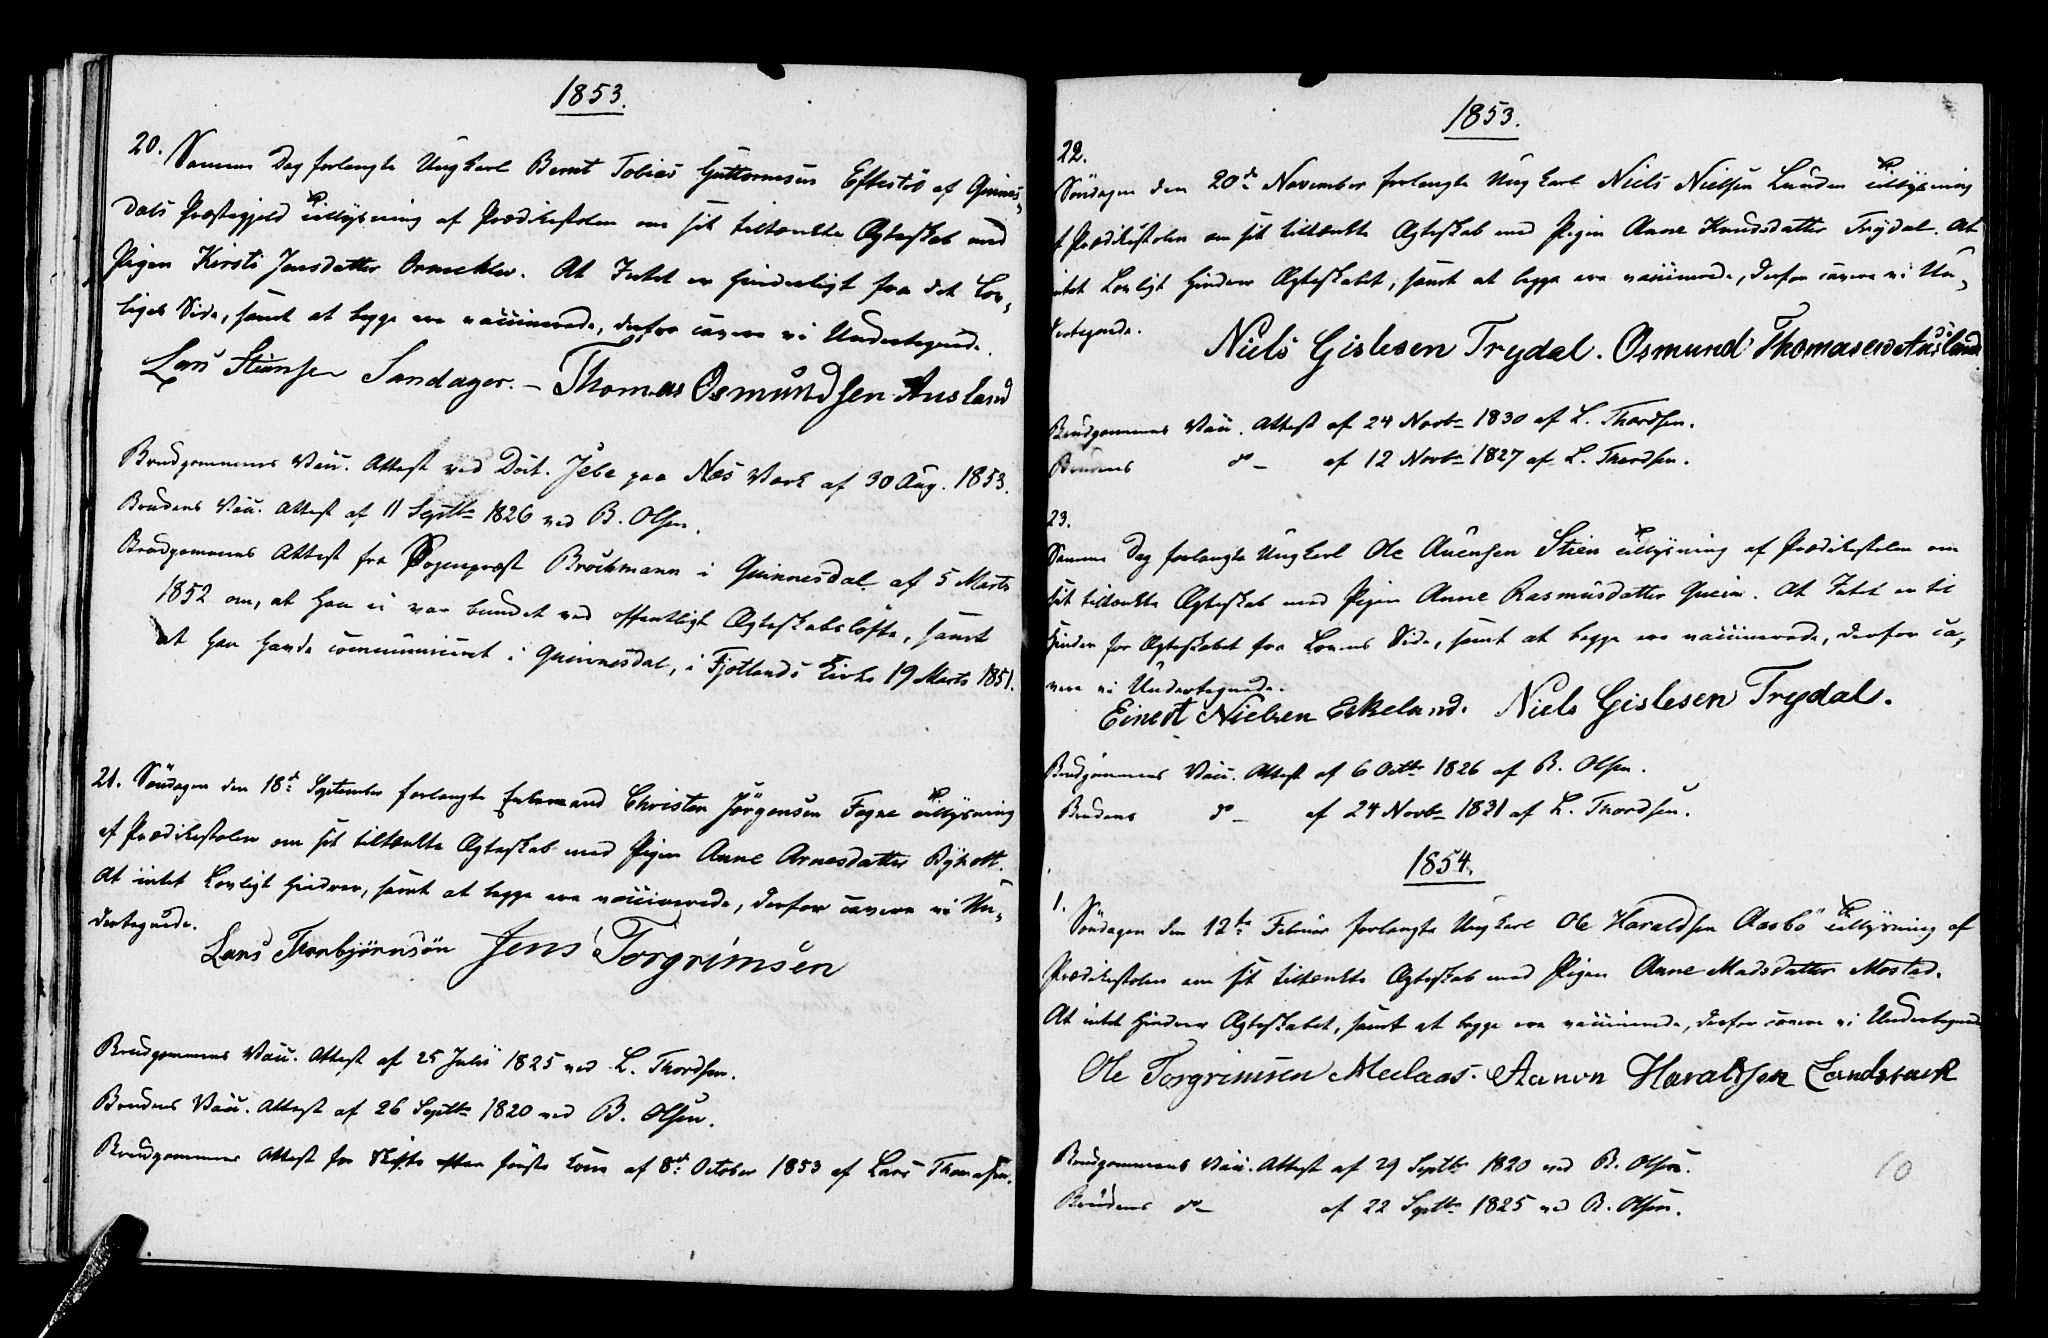 1853.
20. Samme Dag forlangte Ungkarl Bernt Tobias Guttormsen Eftestöl af Qvines-
dals Præstegjeld Tillysning af Prædikestolen om sit tiltænkte Ægteskab med
Pigen Kirsti Jensdatter Ormeklev. At Intet er hinderligt fra det Lov-
liges Side, samt at begge ere vaccinerede, derfor cavere vi Undertegnede.
Lars Sandager. – Thomas Osmundsen Ausland
Brudgommens Vacc. Attest ved Doct. Jebe paa Næs Værk af 30 Aug. 1853.
Brudens Vacc. Attest af 11 Septbr 1826 ved B. Olsen.
Brudgommens Attest fra Sogneprest Brochmann i Qvinnesdal af 5 Marts
1852 om, at han ei var bundet ved offentligt Ægteskabsløfte, samt
at han havde communiceret i Qvinnesdal, i Fjotlands Kirke 19 Marts 1851.
21. Søndagen den 18de September forlangte Enkemand Christen Jörgensen Fogne Tillysning
af Prædikestolen om sit tiltænkte Ægteskab med Pigen Anne Arnesdatter Byholt.
At intet Lovligt hindrer, samt at begge ere vaccinerede, derfor cavere vi Un-
dertegnede.
Lars Thorbjørnsön Jens Torgrimsen
Brudgommens Vacc. Attest af 25 Juli 1825 ved L. Thordsen.
Brudens Vacc. Attest af 26 Septbr 1820 ved B. Olsen.
Brudgommens Attest for Skifte efter første Kone af 8de October 1853 af Lars Thomassen.
1853.
22.
Søndagen den 20de November forlangte Ungkarl Niels Nielsen Lunden Tillysning
af Prædikestolen om sit tiltænkte Ægteskab med Pigen Anne Knudsdatter Trydal. At
intet Lovligt hindrer Ægteskabet, samt at begge ere vaccinerede, derfor cavere vi Un-
dertegnede.
Niels Gislesen Trydal. Osmund Thomasen Ausland
Brudgommens Vacc. Attest af 24 Novbr 1830 af L. Thordsen.
Brudens do – af 12 Novbr 1827 af L. Thordsen.
23.
Samme Dag forlangte Ungkarl Ole Auensen Stien Tillysning af Prædikestolen om
sit tiltænkte Ægteskab med Pigen Anne Rasmusdatter Qveim. At Intet er til
Hinder for Ægteskabet fra Lovens Side, samt at begge ere vaccinerede, derfor ca-
vere vi Undertegnede.
Nielsen Eskeland. Niels Gislesen Trydal.
Brudgommens Vacc. Attest af 6 Octbr 1826 af B. Olsen.
Brudens do – af 24 Novbr 1831 af L. Thordsen.
1854.
1. Søndagen den 12te Februar forlangte Ungkarl Ole Haraldsen Aasbö Tillysning af
Prædikestolen om sit tiltænkte Ægteskab med Pigen Anne Madsdatter Mostad.
At intet hindrer Ægteskabet, samt at begge ere vaccinerede, derfor cavere vi Undertegnede
Ole Torgrimsen Mælaas. Aanon Haraldsen Landsverk
Brudgommens Vacc. Attest af 29 Septbr 1820 ved B. Olsen.
Brudens do – af 22 Septbr 1825 ved B. Olsen.
10